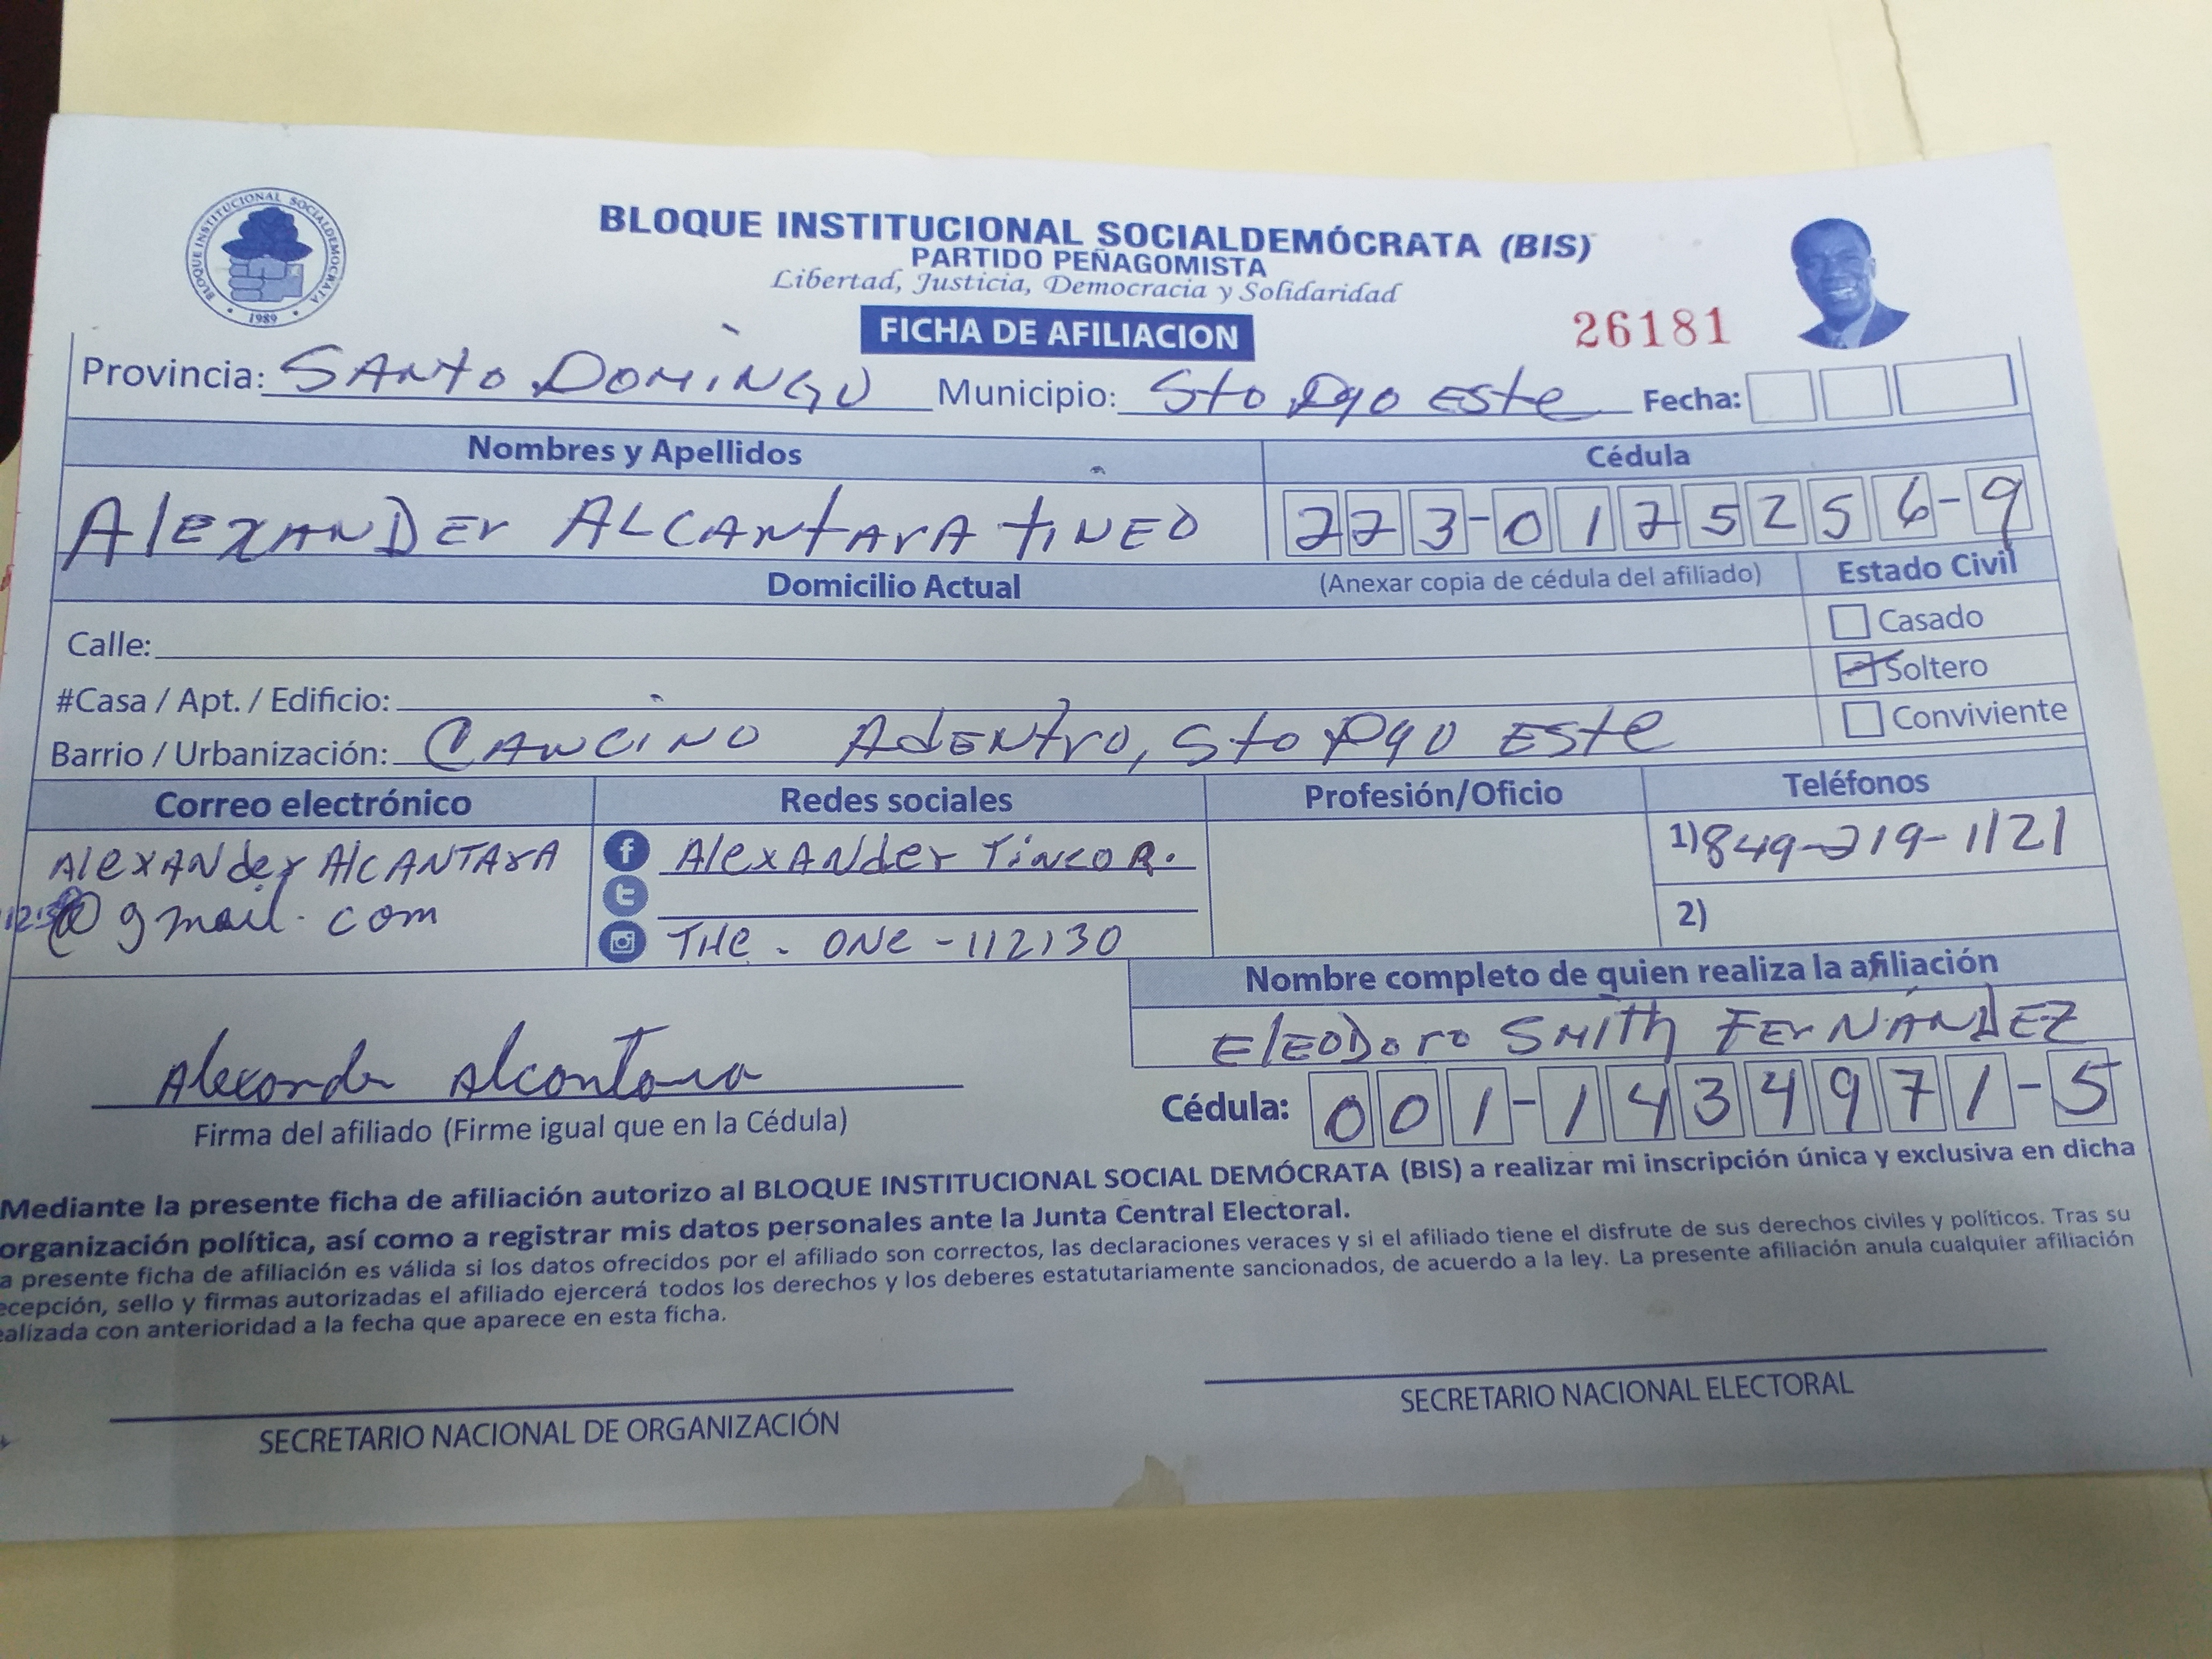 BLOQUE INSTITUCIONAL SOCIALDEMOCRATA
1989
BLOQUE INSTITUCIONAL SOCIALDEMÓCRATA (BIS)
PARTIDO PEÑAGOMISTA
Libertad, Justicia, Democracia y Solidaridad
FICHA DE AFILIACION
26181
Provincia: SANTO DOMINGO Municipio: Sto Dgo ESte Fecha:
Nombres y Apellidos Cédula
AlEXANDEr ALCANtArA tINEO 223-0125256-9
Domicilio Actual (Anexar copia de cédula del afiliado) Estado Civil
Calle: Casado
#Casa / Apt. / Edificio: Soltero
Barrio / Urbanización: CANCINO AdENtrO, Sto Dgo ESte Conviviente
Correo electrónico Redes sociales Profesión/Oficio Teléfonos
AlexANder AlCANTArA AlexANder Tineo R. 1) 849-219-1121
@gmail.com 2)
THe - ONe - 112130
Nombre completo de quien realiza la afiliación
ElEODOrO SMITh FErNÁNDEZ
Alexander Alcantara
Firma del afiliado (Firme igual que en la Cédula) Cédula: 001-1434971-5
Mediante la presente ficha de afiliación autorizo al BLOQUE INSTITUCIONAL SOCIAL DEMÓCRATA (BIS) a realizar mi inscripción única y exclusiva en dicha
organización política, así como a registrar mis datos personales ante la Junta Central Electoral.
a presente ficha de afiliación es válida si los datos ofrecidos por el afiliado son correctos, las declaraciones veraces y si el afiliado tiene el disfrute de sus derechos civiles y políticos. Tras su
ecepción, sello y firmas autorizadas el afiliado ejercerá todos los derechos y los deberes estatutariamente sancionados, de acuerdo a la ley. La presente afiliación anula cualquier afiliación
ealizada con anterioridad a la fecha que aparece en esta ficha.
SECRETARIO NACIONAL DE ORGANIZACIÓN SECRETARIO NACIONAL ELECTORAL